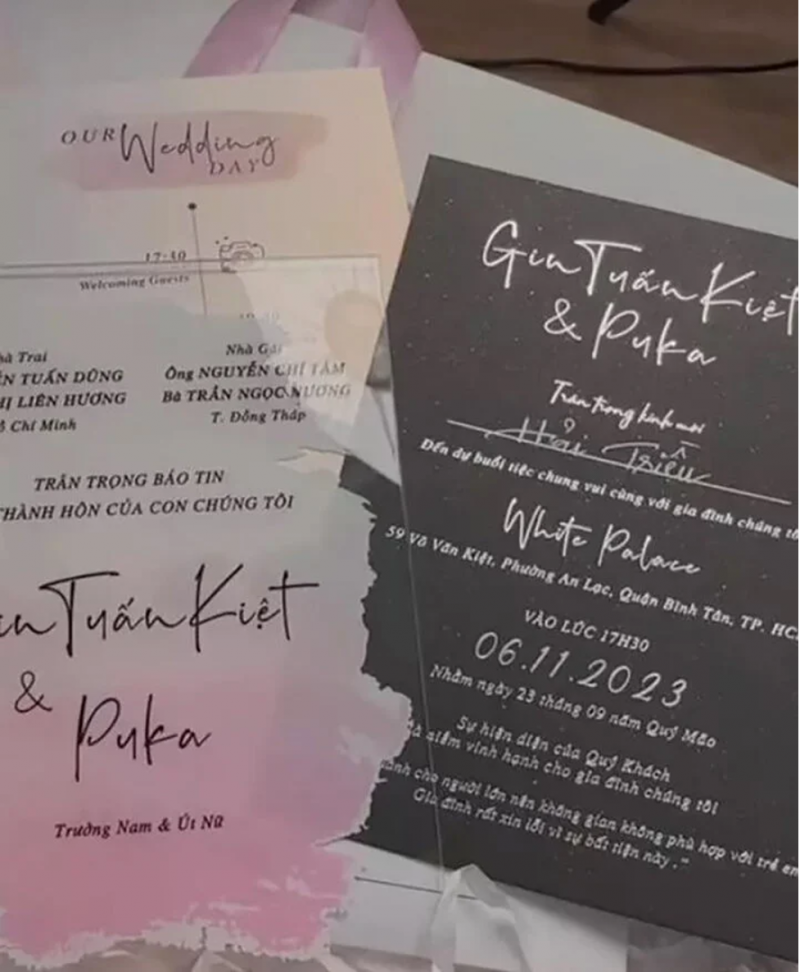 OUR Wedding
DAY
17:30
Welcoming Guests
Trai
TUẤN DŨNG
LIÊN HƯƠNG
Chí Minh
Nhà Gái
Ông NGUYỄN CHÍ TÂM
Bà TRẦN NGỌC NƯƠNG
T. Đồng Tháp
TRÂN TRỌNG BÁO TIN
THÀNH HÔN CỦA CON CHÚNG TÔI
Tuấn Kiệt
&
Puka
Trưởng Nam & Út Nữ
Gin Tuấn Kiệt
& Puka
Trân trọng kính mời
Hải Triều
Đến dự buổi tiệc chung vui cùng với gia đình chúng
White Palace
59 Võ Văn Kiệt, Phường An Lạc, Quận Bình Tân, TP.
VÀO LÚC 17H30
06.11.2023
Nhằm ngày 23 tháng 09 năm Quý Mão
Sự hiện diện của Quý Khách
niềm vinh hạnh cho gia đình chúng tôi
cho người lớn nên không gian không phù hợp với trẻ em
Gia đình rất xin lỗi vì sự bất tiện này."